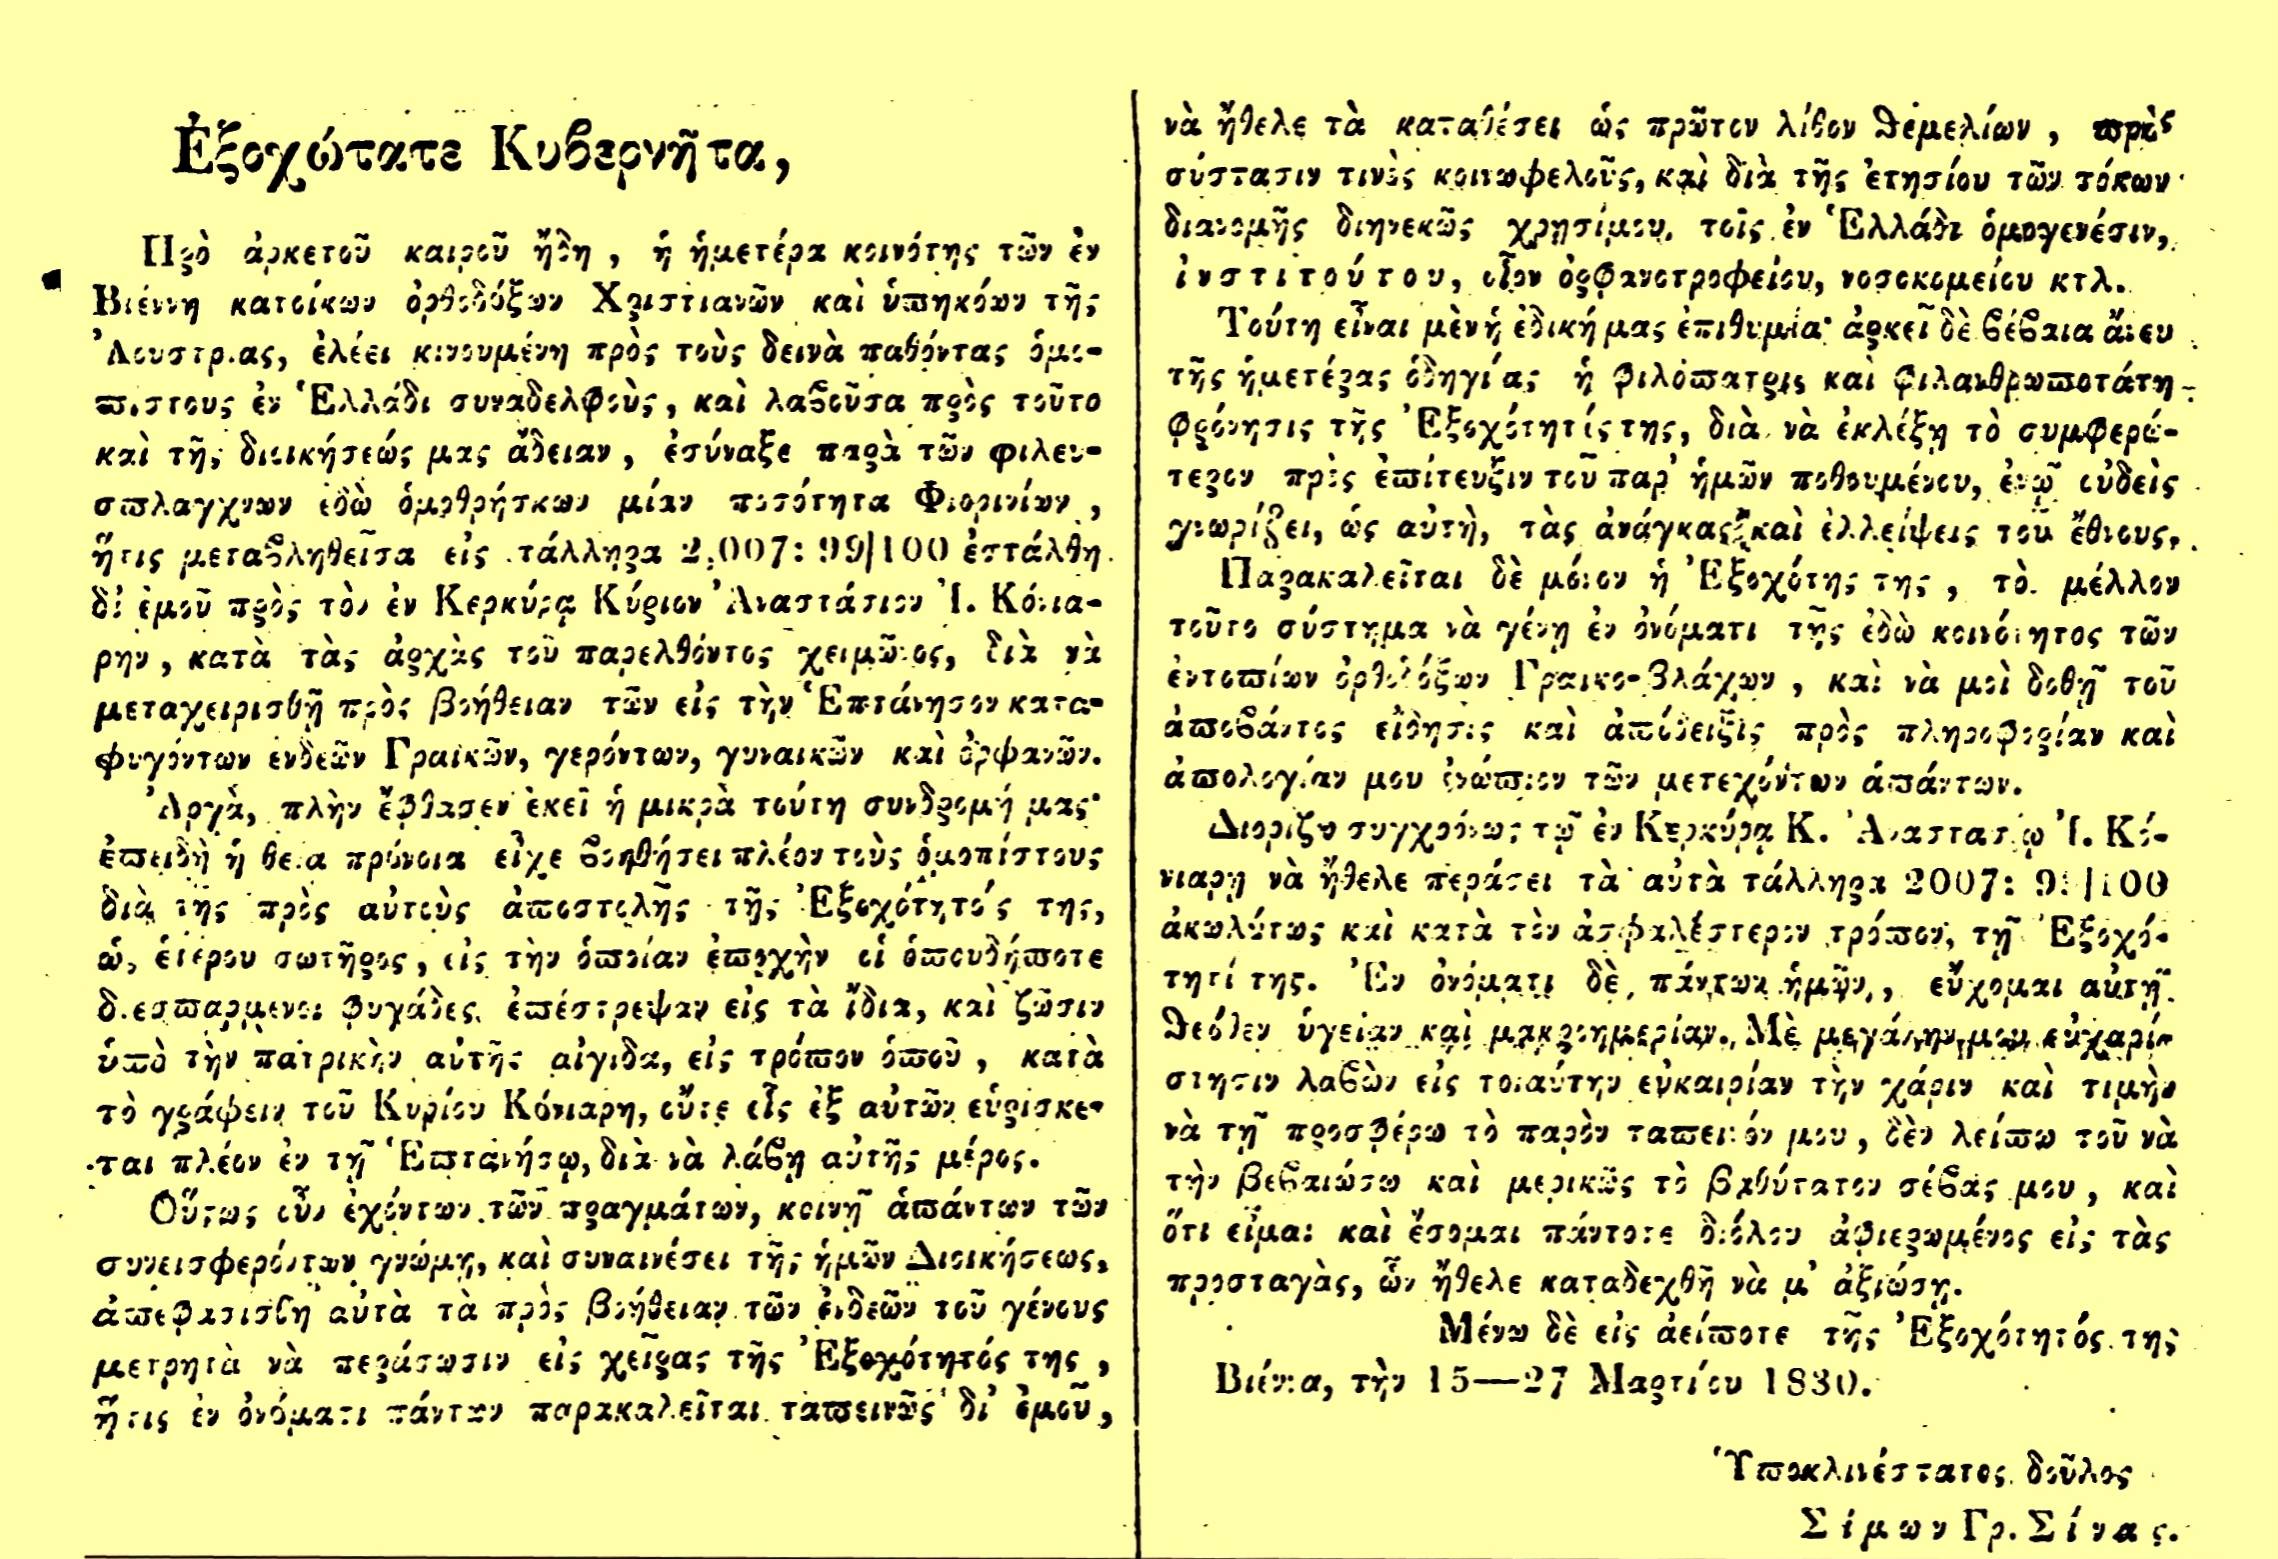 Ἐξοχώτατε Κυβερνῆτα,
Πρὸ ἀρκετοῦ καιροῦ ἤδη, ἡ ἡμετέρα κοινότης τῶν ἐν
Βιέννῃ κατοίκων ὀρθοδόξων Χριστιανῶν καὶ ὑπηκόων τῆς
Ἀουστρίας, ἐλέει κινουμένη πρὸς τοὺς δεινὰ παθόντας ὁμο-
πίστους ἐν Ἑλλάδι συναδελφοὺς, καὶ λαβοῦσα πρὸς τοῦτο
καὶ τῆς διοικήσεώς μας ἄδειαν, ἐσύναξε παρὰ τῶν φιλευ-
σπλαγχνων ἐδῶ ὁμοθρήσκων μίαν ποσότητα Φιορινίων,
ἥτις μεταβληθεῖσα εἰς τάλληρα 2,007: 99|100 ἐστάλθη
δι' ἐμοῦ πρὸς τὸν ἐν Κερκύρᾳ Κύριον Ἀναστάσιον Ἰ. Κόνια-
ρην, κατὰ τὰς ἀρχὰς τοῦ παρελθόντος χειμῶνος, διὰ νὰ
μεταχειρισθῇ πρὸς βοήθειαν τῶν εἰς τὴν Ἑπτάνησον κατα-
φυγόντων ἐνδεῶν Γραικῶν, γερόντων, γυναικῶν καὶ ὀρφανῶν.
Ἀργὰ, πλὴν ἔφθασεν ἐκεῖ ἡ μικρὰ τούτη συνδρομή μας·
ἐπειδὴ ἡ θεία πρόνοια εἶχε βοηθήσει πλέον τοὺς ὁμοπίστους
διὰ τῆς πρὸς αὐτοὺς ἀποστολῆς τῆς Ἐξοχότητός της,
ὡς ἑτέρου σωτῆρος, εἰς τὴν ὁποίαν ἐποχὴν οἱ ὁπουδήποτε
διεσπαρμένοι φυγάδες ἐπέστρεψαν εἰς τὰ ἴδια, καὶ ζῶσιν
ὑπὸ τὴν πατρικὴν αὐτῆς αἰγίδα, εἰς τρόπον ὁποῦ, κατὰ
τὸ γράψειν τοῦ Κυρίου Κόνιαρη, οὔτε εἷς ἐξ αὐτῶν εὑρίσκε-
ται πλέον ἐν τῇ Ἑπτανήσῳ, διὰ νὰ λάβῃ αὐτῆς μέρος.
Οὕτως οὖν ἐχόντων τῶν πραγμάτων, κοινῇ ἁπάντων τῶν
συνεισφερόντων γνώμῃ, καὶ συναινέσει τῆς ἡμῶν Διοικήσεως,
ἀπεφασίσθη αὐτὰ τὰ πρὸς βοήθειαν τῶν ἐνδεῶν τοῦ γένους
μετρητὰ νὰ περάσωσιν εἰς χεῖρας τῆς Ἐξοχότητός της,
ἥτις ἐν ὀνόματι πάντων παρακαλεῖται ταπεινῶς δι' ἐμοῦ,
νὰ ἤθελε τὰ καταθέσει ὡς πρῶτον λίθον θεμελίων, πρὸς
σύστασιν τινὸς κοινωφελοῦς, καὶ διὰ τῆς ἐτησίου τῶν τόκων
διανομῆς διηνεκῶς χρησίμου τοῖς ἐν Ἑλλάδι ὁμογενέσιν,
ἰνστιτούτου, οἷον ὀρφανοτροφείου, νοσοκομείου κτλ.
Τούτη εἶναι μὲν ἡ ἐδική μας ἐπιθυμία· ἀρκεῖ δὲ βέβαια ἄνευ
τῆς ἡμετέρας ὁδηγίας ἡ φιλόπατρις καὶ φιλανθρωποτάτη
φρόνησις τῆς Ἐξοχότητός της, διὰ νὰ ἐκλέξῃ τὸ συμφερώ-
τερον πρὸς ἐπίτευξιν τοῦ παρ' ἡμῶν ποθουμένου, ἐνῷ οὐδεὶς
γνωρίζει, ὡς αὐτὴ, τὰς ἀνάγκας καὶ ἐλλείψεις τοῦ ἔθνους.
Παρακαλεῖται δὲ μόνον ἡ Ἐξοχότης της, τὸ μέλλον
τοῦτο σύστημα νὰ γένῃ ἐν ὀνόματι τῆς ἐδῶ κοινότητος τῶν
ἐντοπίων ὀρθοδόξων Γραικο-Βλάχων, καὶ νὰ μοὶ δοθῇ τοῦ
ἀποβάντος εἴδησις καὶ ἀπόδειξις πρὸς πληροφορίαν καὶ
ἀπολογίαν μου ἐνώπιον τῶν μετεχόντων ἁπάντων.
Διορίζω συγχρόνως τῷ ἐν Κερκύρᾳ Κ. Ἀναστασίῳ Ἰ. Κό-
νιαρῃ νὰ ἤθελε περάσει τὰ αὐτὰ τάλληρα 2007: 99|100
ἀκωλύτως καὶ κατὰ τὸν ἀσφαλέστερον τρόπον, τῇ Ἐξοχό-
τητί της. Ἐν ὀνόματι δὲ πάντων ἡμῶν, εὔχομαι αὐτῇ
θεόθεν ὑγείαν καὶ μακροημερίαν. Μὲ μεγάλην μου εὐχαρί-
στησιν λαβὼν εἰς τοιαύτην εὐκαιρίαν τὴν χάριν καὶ τιμὴν
νὰ τῇ προσφέρω τὸ παρὸν ταπεινόν μου, δὲν λείπω τοῦ νὰ
τὴν βεβαιώσω καὶ μερικῶς τὸ βαθύτατον σέβας μου, καὶ
ὅτι εἶμαι καὶ ἔσομαι πάντοτε διόλου ἀφιερωμένος εἰς τὰς
προσταγὰς, ὧν ἤθελε καταδεχθῇ νὰ μ' ἀξιώσῃ.
Μένω δὲ εἰς ἀείποτε τῆς Ἐξοχότητός της
Βιέννα, τὴν 15—27 Μαρτίου 1830.
Ὑποκλινέστατος δοῦλος
Σίμων Γρ. Σίνας.